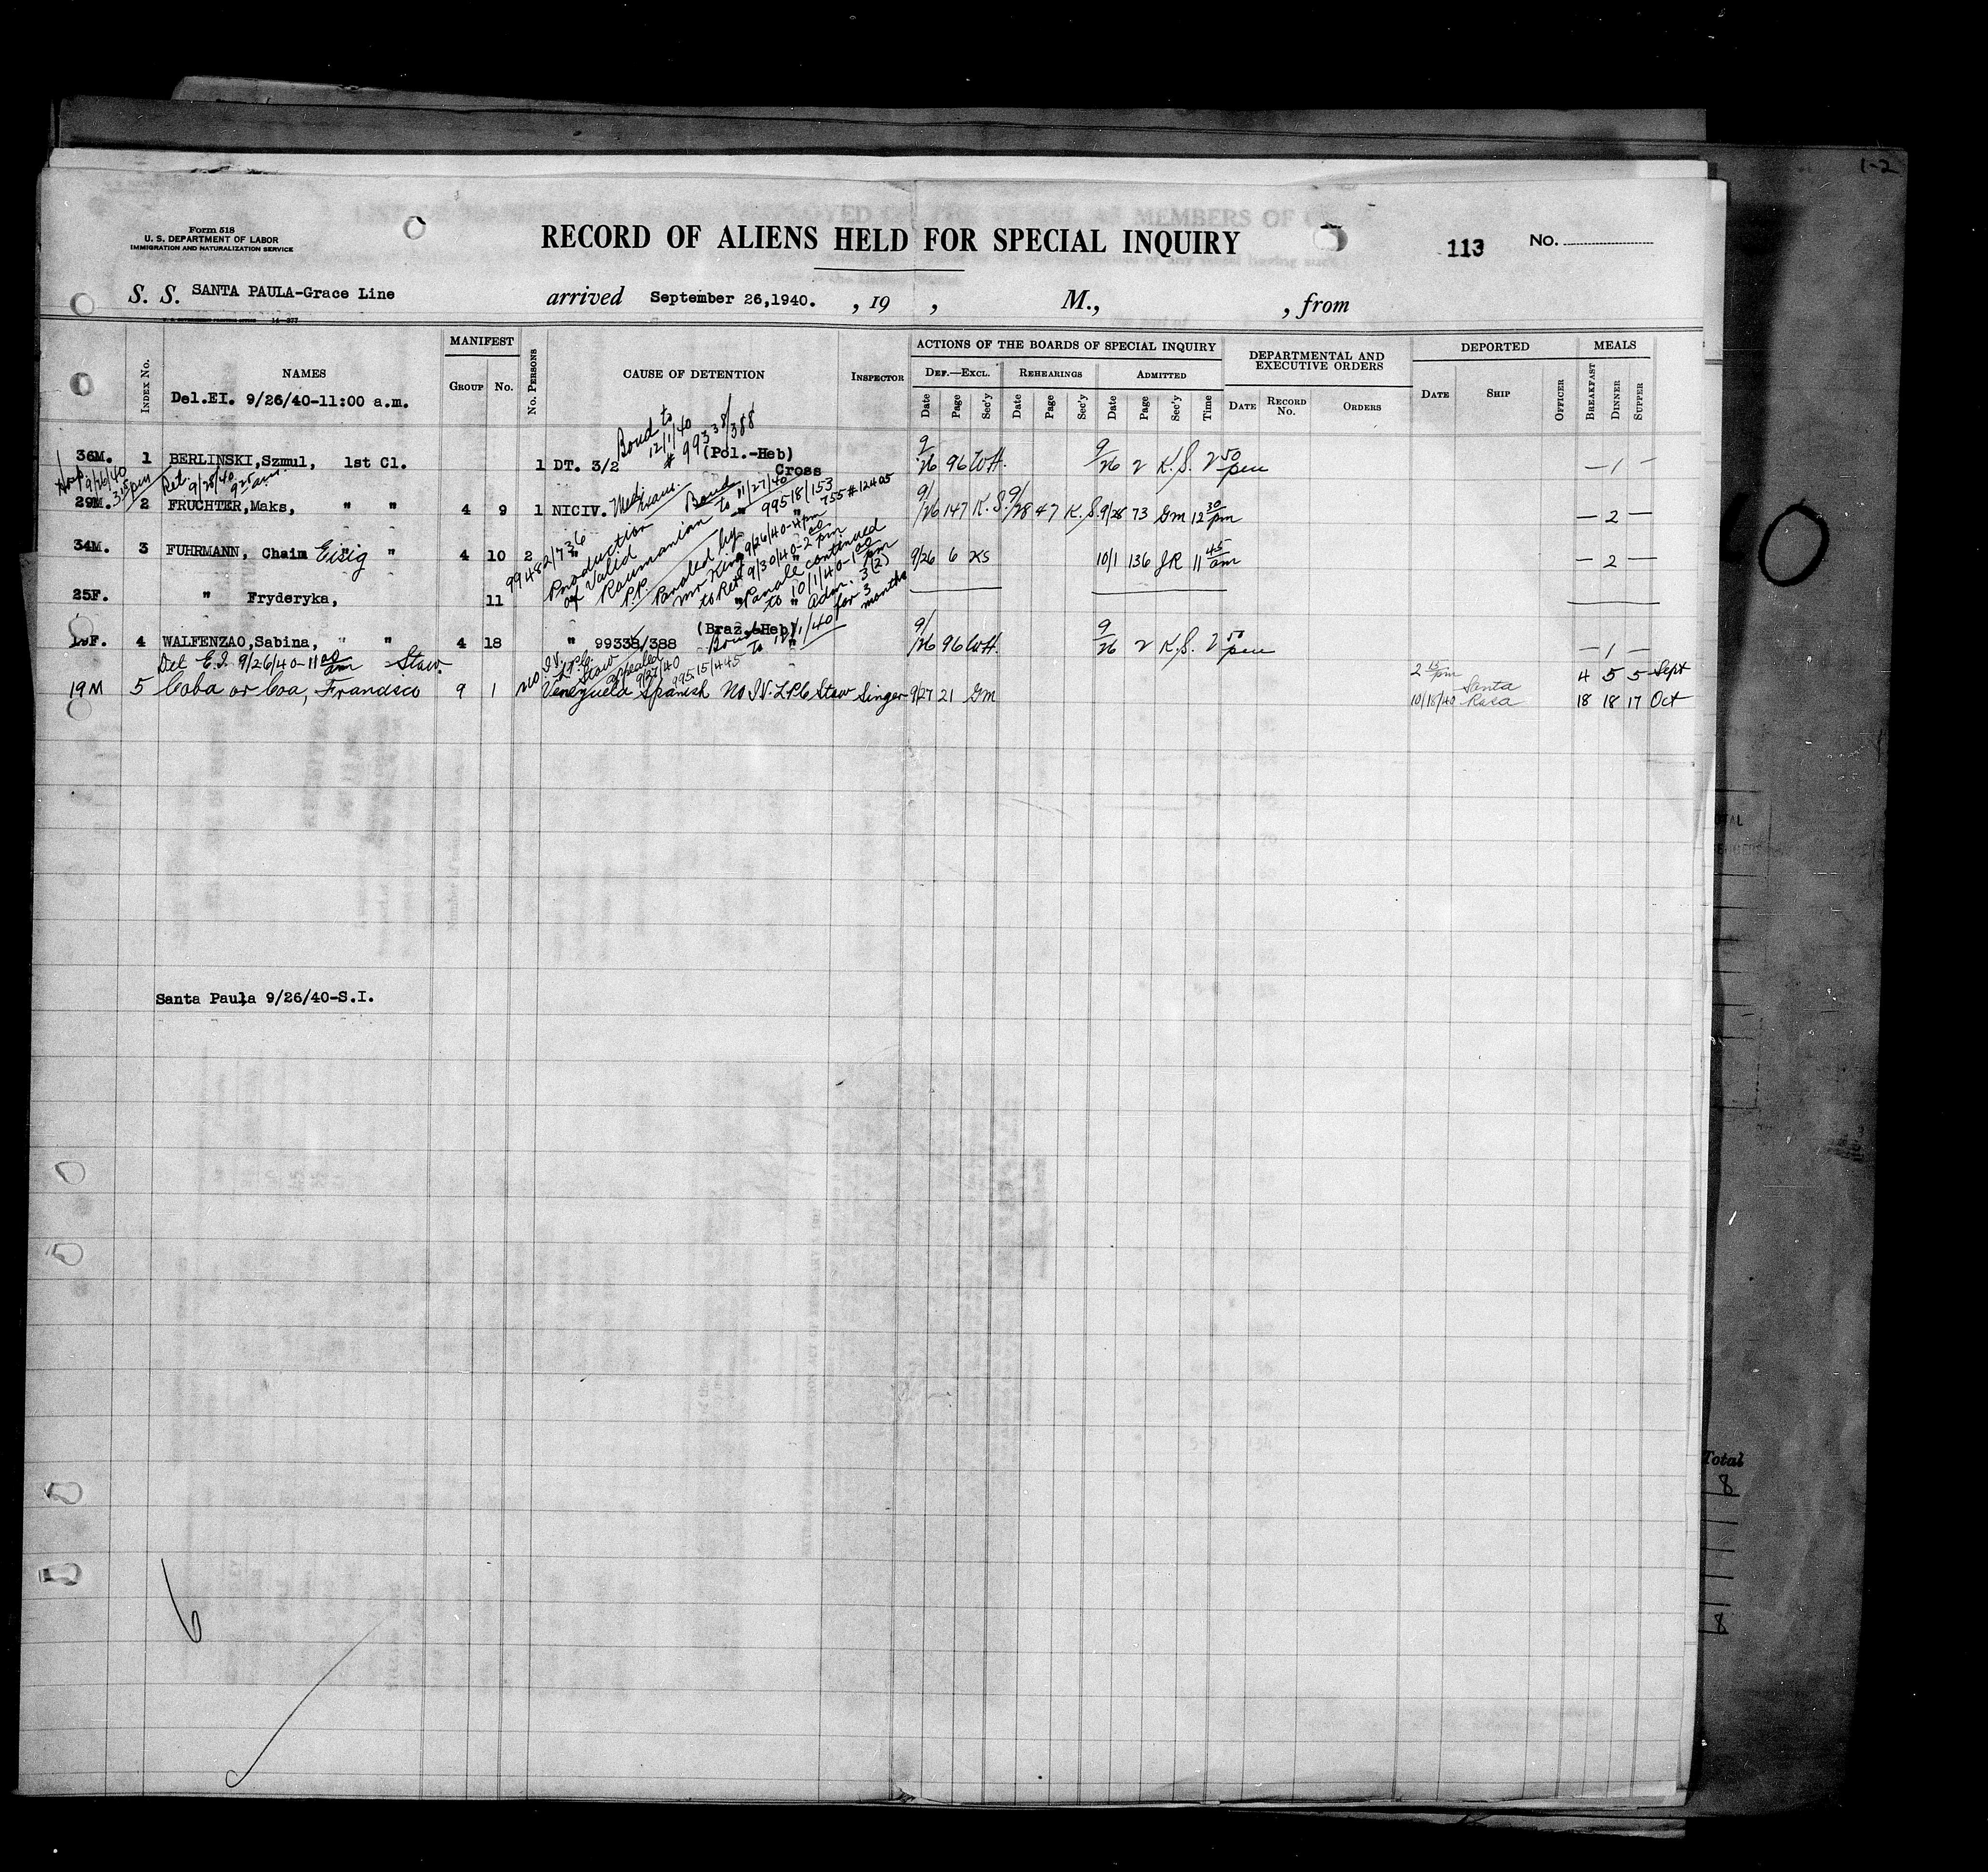 1-2
Form 518
U. S. DEPARTMENT OF LABOR
IMMIGRATION AND NATURALIZATION SERVICE
RECORD OF ALIENS HELD FOR SPECIAL INQUIRY
113
No.
S. S. SANTA PAULA-Grace Line arrived September 26,1940. , 19 , M., , from
Index No. NAMES MANIFEST Group No. No. Persons CAUSE OF DETENTION Inspector
ACTIONS OF THE BOARDS OF SPECIAL INQUIRY
Def.—Excl. Rehearings Admitted
Date Page Sec'y Date Page Sec'y Date Page Sec'y Time
DEPARTMENTAL AND EXECUTIVE ORDERS
Date Record No. Orders
DEPORTED
Date Ship Officer
MEALS
Breakfast Dinner Supper
Del.EI. 9/26/40-11:00 a.m.
Bond to
12/1/40
# 99338/388
36M. 1 BERLINSKI,Szmul, 1st Cl. 1 DT. 3/2 (Pol.-Heb) 9/26 96 WH. 9/26 2 K.S. 2 50 pm — 1 —
Cross
Hosp. 9/26/40 3 15 pm
Ret. 9/28/40 9 25 am.
29M. 2 FRUCHTER,Maks, " " 4 9 1 NICIV. Bond to 11/27/40 9/26 147 K.S. 9/28 47 K.S. 9/28 73 GM 12 30 pm — 2 —
99518/153
755 #12405
99482/736
34M. 3 FUHRMANN, Chaim Eisig " " 4 10 2 " 9/26 6 KS 10/1 136 JR 11 45 am — 2 —
Production
of Valid
Roumanian
P.P.
Paroled by
Mr King 9/26/40-4pm
to Ret 9/30/40-2 00 pm
Parole continued
to 10/1/40-1 00 pm
Adm. 3(2)
for 3
months
25F. " Fryderyka, 11
(Braz.-Heb)
4 WALFENZAO,Sabina, " " 4 18 " 99338/388 Bond to 12/1/40 9/26 96 WH. 9/26 2 K.S. 2 50 pm — 1 —
Del E.I. 9/26/40-11 00 am Stow.
No I.V.
L.P.C.
Stow
appealed
9/27/40
99515/445
19M 5 Coba or Coa, Francisco 9 1 Venezuela Spanish No I.V. LPC Stow Singer 9/27 21 GM
2 15 pm 10/18/40 Santa Rosa
4 5 5 Sept
18 18 17 Oct
Santa Paula 9/26/40-S.I.
6
Total
8
8